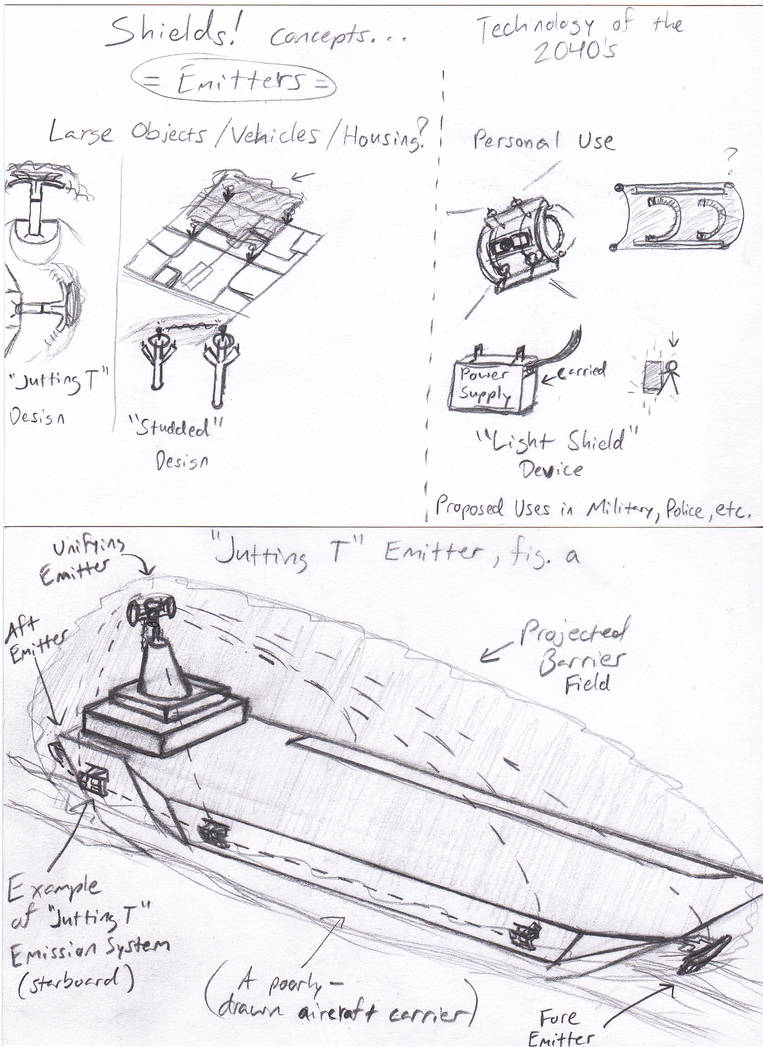 Shields! Concepts...
Technology of the
2040's
= Emitters =
Large Objects/Vehicles/Housing?
Personal Use
?
"Jutting T"
Design
"Studded"
Design
Power
Supply
Carried
"Light Shield"
Device
Proposed Uses in Military, Police, etc.
"Jutting T" Emitter, fig. a
Unifying
Emitter
Aft
Emitter
Projected
Barrier
Field
Example
of "Jutting T"
Emission System
(starboard)
(A poorly-
drawn aircraft carrier)
Fore
Emitter